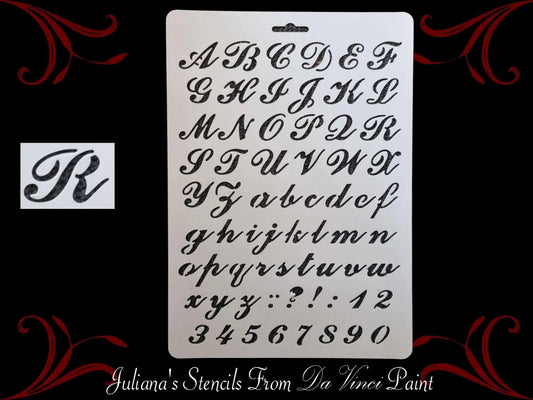 R
A B C D E F
G H I J K L
M N O P Q R
S T U V W X
Y Z a b c d e f
g h i j k l m n
o p q r s t u v w
x y z : : ? ! : 1 2
3 4 5 6 7 8 9 0
Juliana's Stencils From Da Vinci Paint